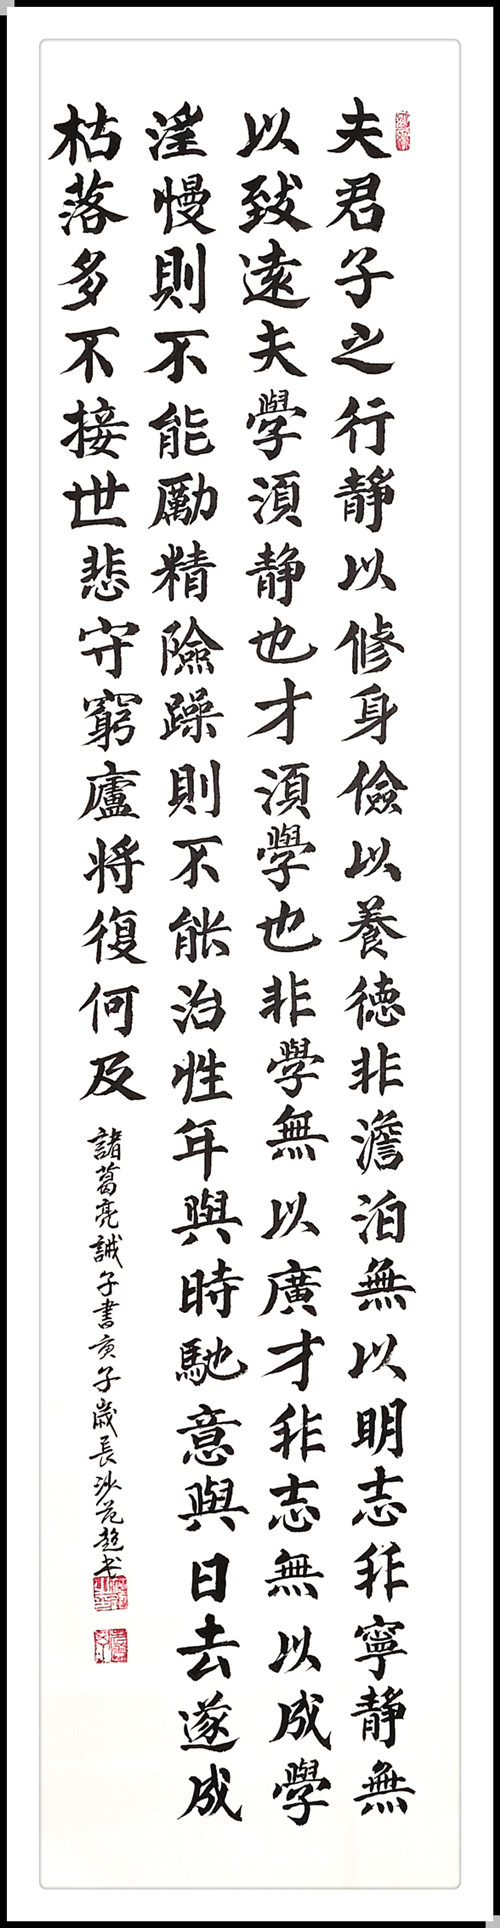 夫君子之行静以修身儉以養德非澹泊無以明志非寧静無
以致遠夫學須静也才須學也非學無以廣才非志無以成學
淫慢則不能勵精險躁則不能治性年與時馳意與日去遂成
枯落多不接世悲守窮廬將復何及
諸葛亮誡子書庚子歲長沙范超书